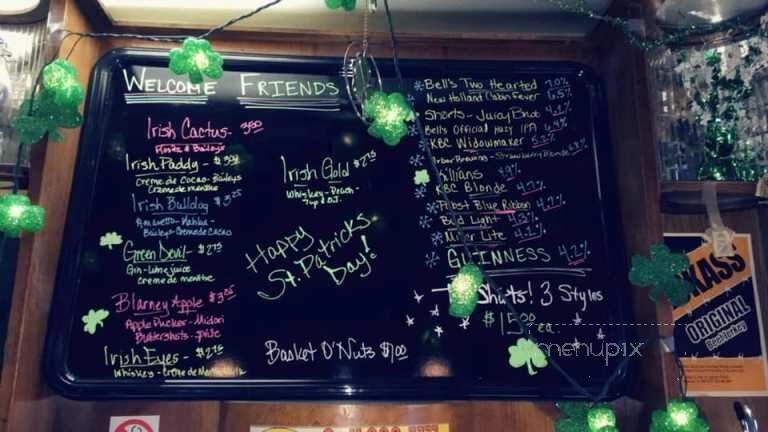 WELCOME FRIENDS
Irish Cactus - 3⁵⁰
Irish Paddy - $3
Creme de Cacao - Baileys
Creme de menthe
Irish Bulldog - $3.25
Amaretto - Kahlua -
Baileys - Creme de Cacao
Green Devil - $2.75
Gin - Lime juice
creme de menthe
Blarney Apple $3.25
Apple Pucker - Midori
Buttershots -
Irish Eyes - $2.75
Whiskey - Creme de
Irish Gold $2.75
Whiskey - Peach -
7up & OJ.
Happy
St. Patricks
Day!
Basket O'Nuts $1.00
Bell's Two Hearted 7.0%
New Holland Cabin Fever 6.5%
Shorts - Juicy Brut 4.2%
Bells Official Hazy IPA 6.4%
KBC Widowmaker 5.2%
Brewing - Strawberry Blonde
Killians 4.9%
KBC Blonde 4.7%
Pabst Blue Ribbon 4.7%
Bud Light 4.2%
Miller Lite 4.2%
GUINNESS 4.2%
Shirts! 3 Styles
$15.00 ea
menupix
KASS
ORIGINAL
Beef Jerky